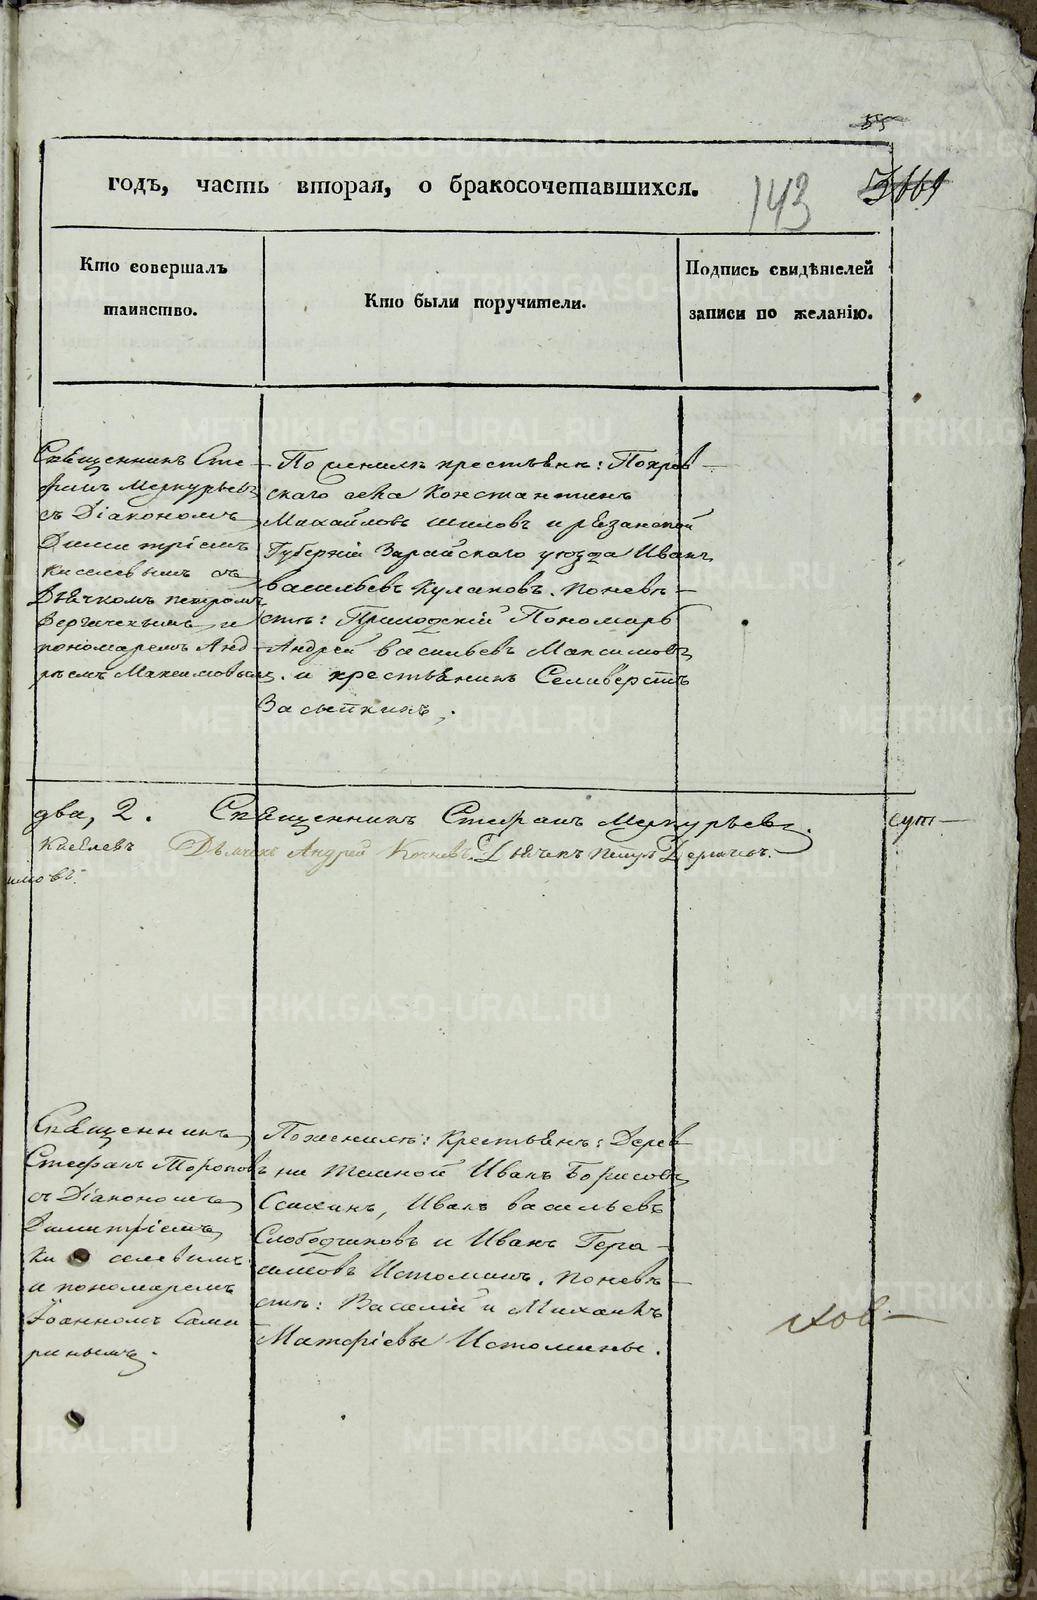 годъ, часть вторая, о бракосочетавшихся.
143
Кто совершалъ
таинство.
Кто были поручители.
Подпись свидѣтелей
записи по желанію.
Священникъ Сте-
фанъ Меркурьевъ
съ Діакономъ
Димитріемъ
Киселевымъ съ
Дьячкомъ петромъ
и
пономаремъ Анд
реемъ Максимовымъ
По женихѣ крестьяне: Покров-
скаго села Константинъ
Михайловъ Шиловъ и рязанской
Губерніи Зарайскаго уезда Иванъ
васильевъ Кулаковъ. по невѣ-
стѣ: Приходскій Пономарь
Андрей васильевъ Максимовъ
и крестьянинъ Селиверстъ
Засыпкинъ.
два, 2. Священникъ Стефанъ Меркурьевъ. сут-
Киселевъ Дьячекъ Андрей Дьячекъ Петръ
имовъ.
Священникъ
Стефанъ Тороповъ
съ Діакономъ
Димитріемъ
Ки селевымъ
и пономаремъ
Іоанномъ
По женихѣ: Крестьяне: Дерев
ни Темной Иванъ Борисовъ
Иванъ васильевъ
Слободчиковъ и Иванъ Гера-
симовъ Истоминъ. по невѣ-
стѣ: Василій и Михаилъ
Матфіевы Истомины.
ков-
METRIKI.GASO-URAL.RU